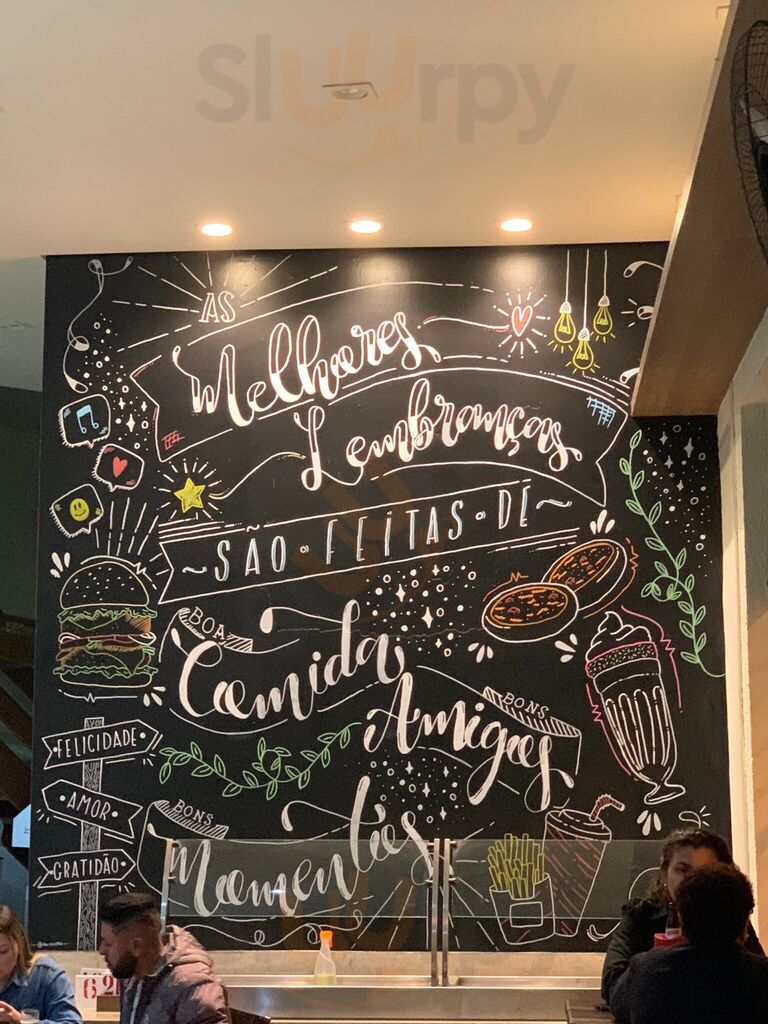 Sluurpy
AS
Melhores
Lembranças
~SÃO • FEITAS • DE~
BOA
Comida
BONS
Amigos
FELICIDADE
AMOR
BONS
Momentos
GRATIDÃO